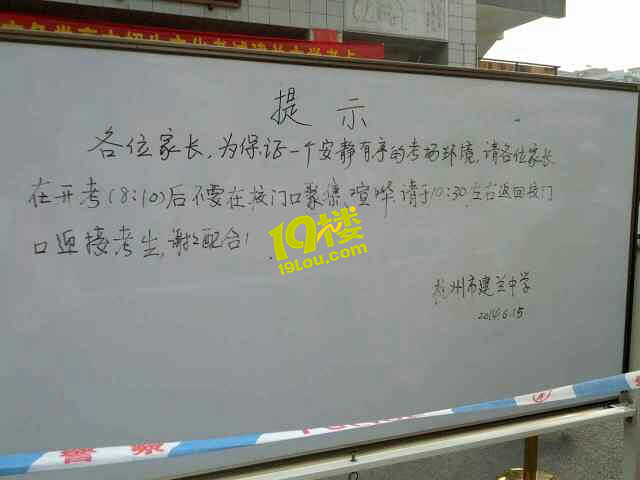 提示
各位家长,为保证一个安静有序的考场环境,请各位家长
在开考(8:10)后不要在校门口聚集、喧哗,请于10:30左右返回校门
口迎接考生,谢谢配合!
19楼
19Lou.com
杭州市建兰中学
2014.6.15
警察